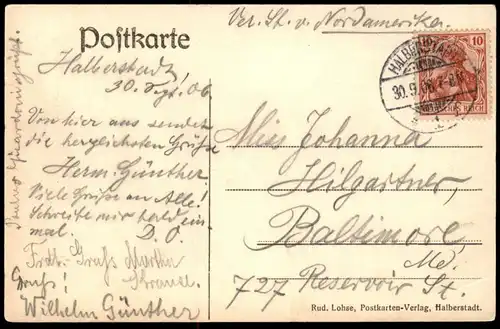 Ver. St. v. Nordamerika.
Postkarte
Halberstadt,
30. Sept. 06
Von hier aus sendet
die herzlichsten Grüße
Herm. Günther
Viele Grüße an Alle!
Schreibe mir bald ein
mal. D. O.
Frdl. Gruss Martha
Gruss!
Wilhelm Günther
HALBERSTADT
30.9.06. 7-8 N
10
DEUTSCHES REICH
Miss Johanna
Hilgartner,
Baltimore,
Md.
727 Reservoir St.
Rud. Lohse, Postkarten-Verlag, Halberstadt.